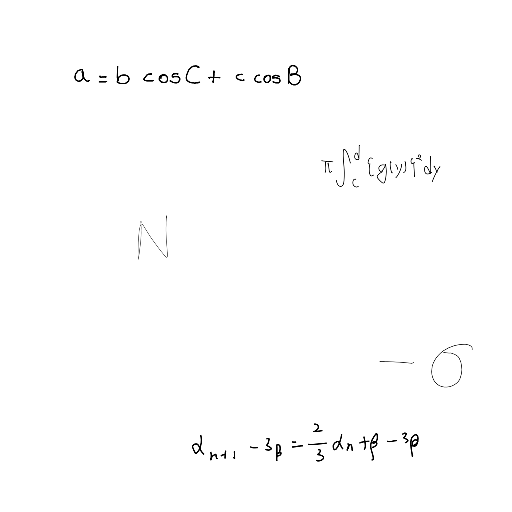 a = b cosC + c cosB
π∫_c^d {g(y)}^2 dy
N
− σ
α_{n+1} − 3β = \frac{2}{3} α_n + β − 3β